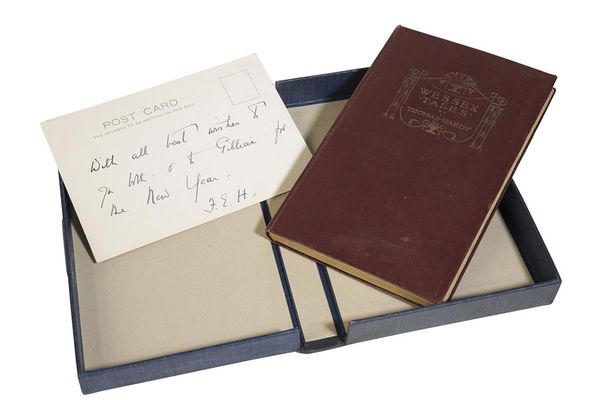 POST CARD
THE ADDRESS TO BE WRITTEN ON THIS SIDE
With all best wishes to
you both - & to Gillian - for
the New Year -
F. E. H -
WESSEX
TALES
THOMAS HARDY